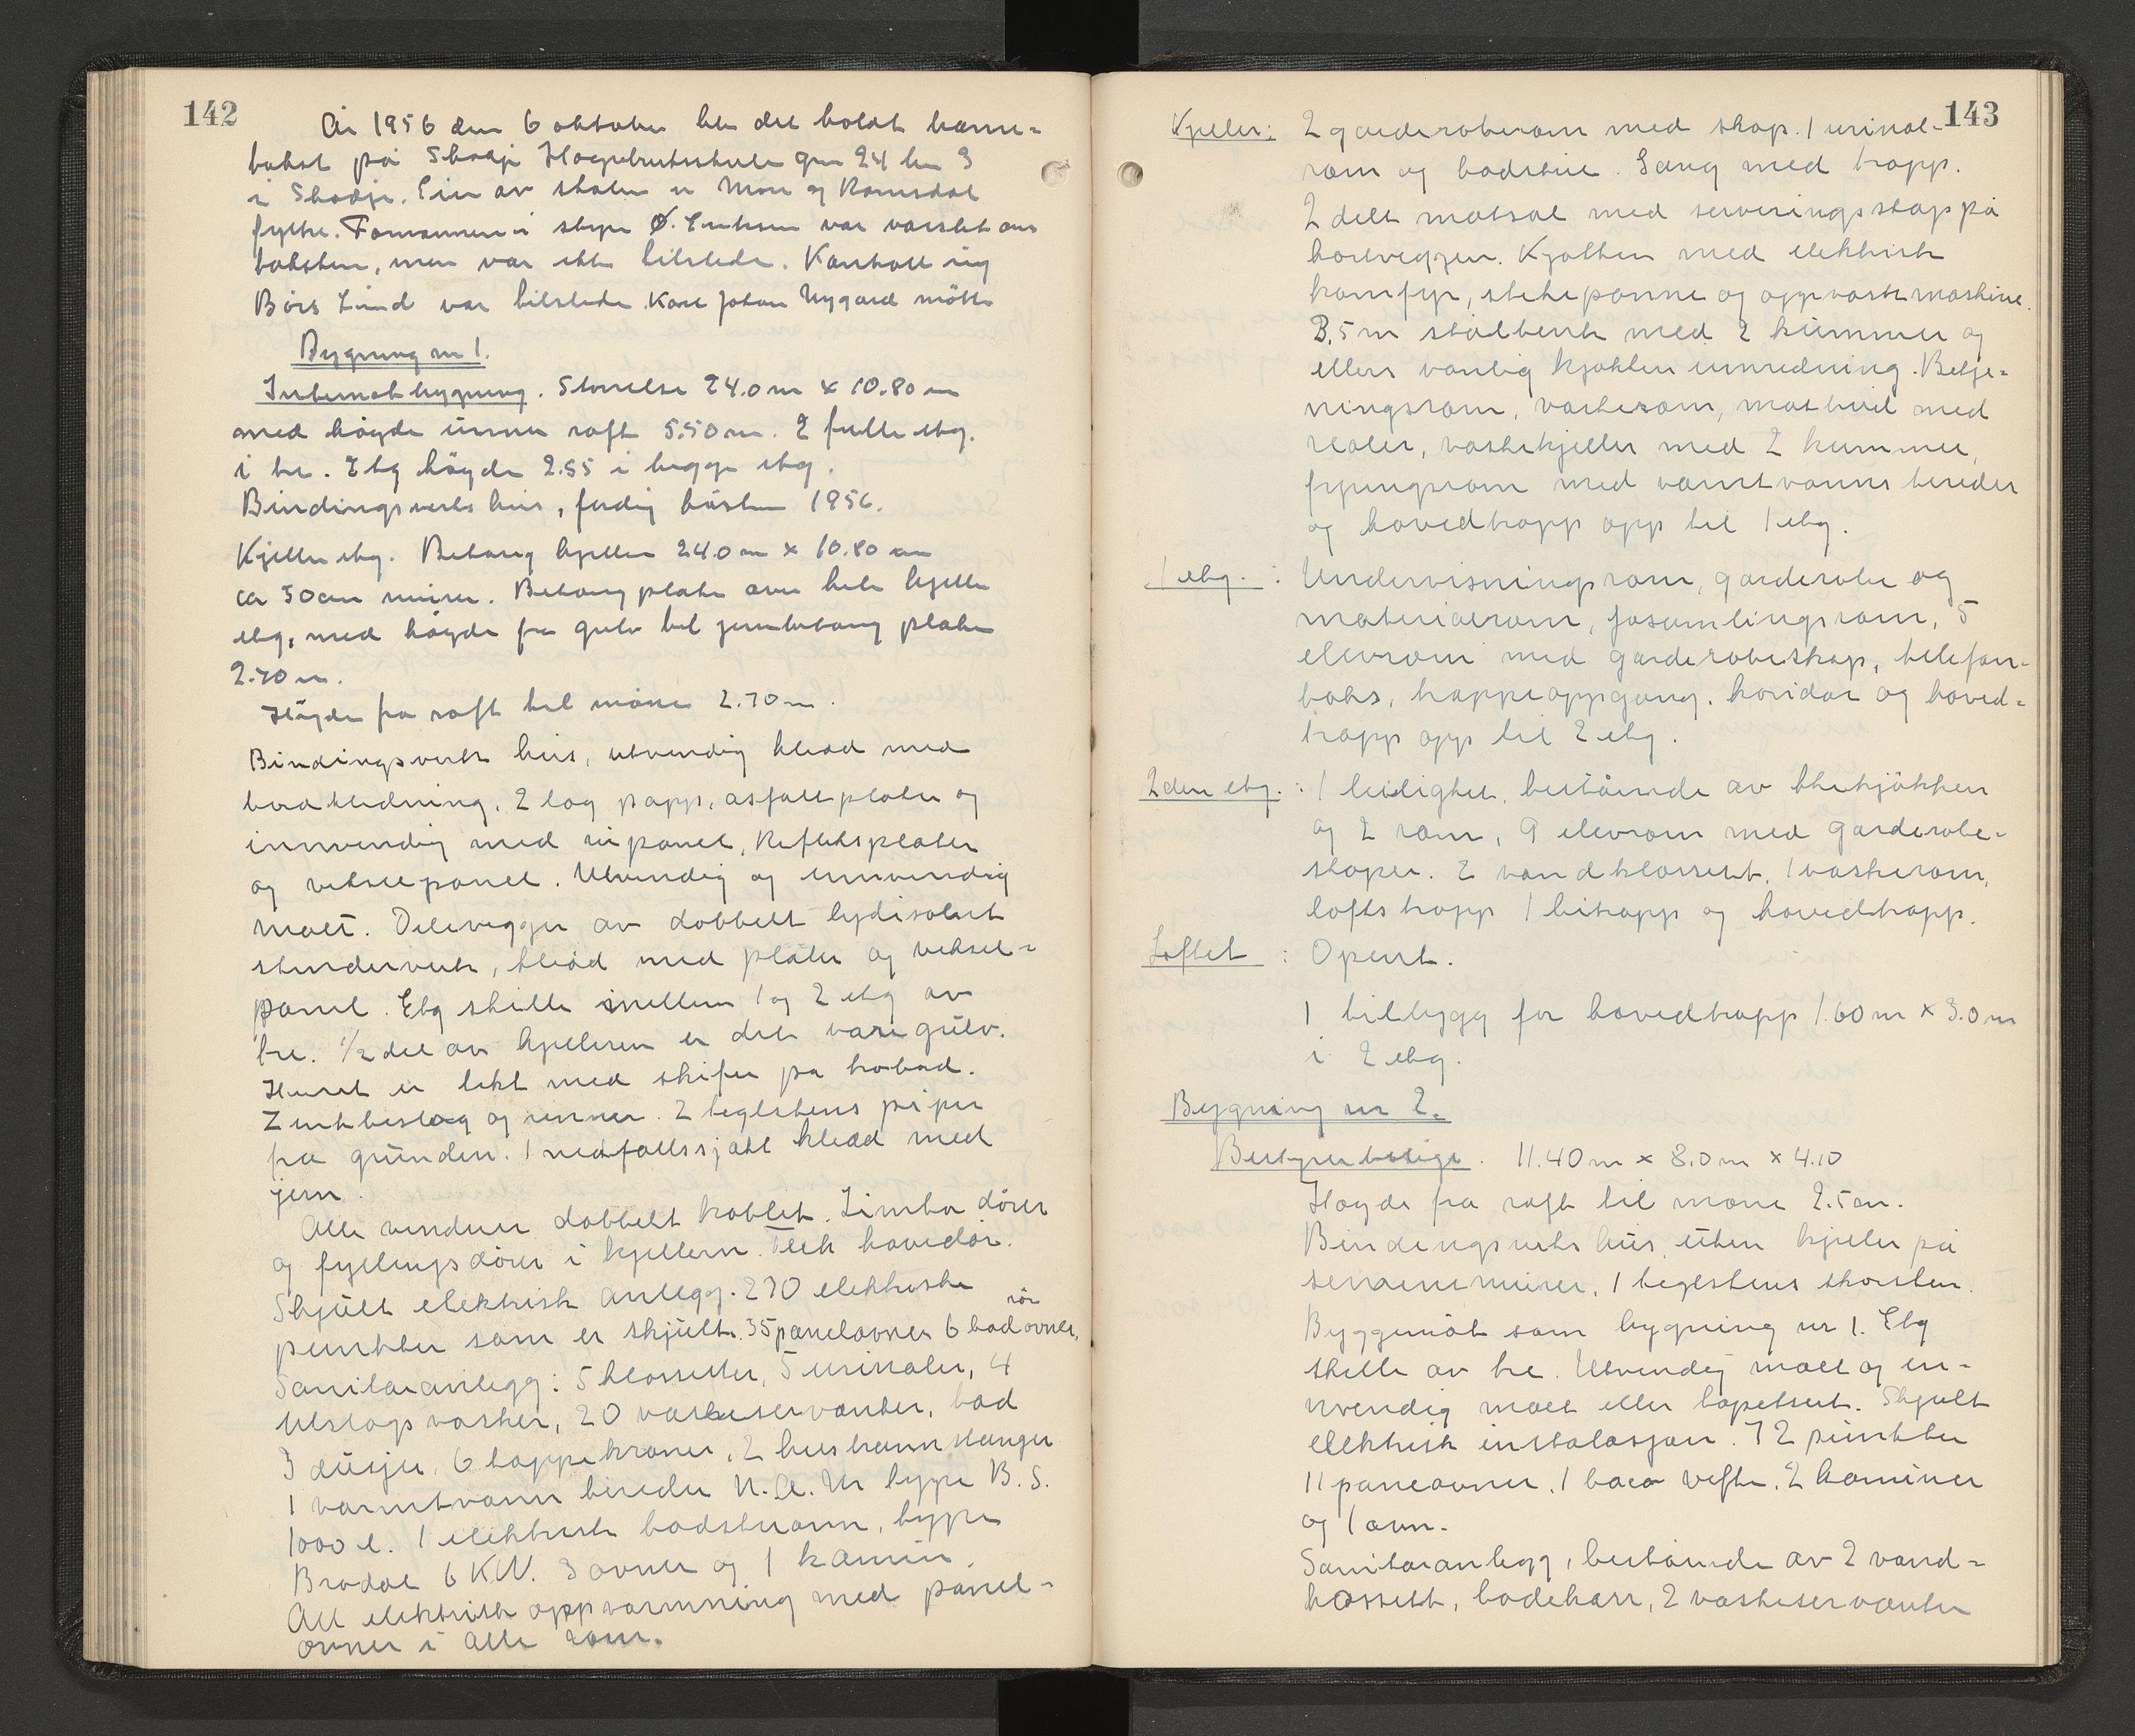 142
År 1956 den 6 oktober ble det holdt branne=
takst på Skodje Hagebruksskule gnr 24 bnr 3
i Skodje. Eier av skolen er Møre og Romsdal
fylke. Formannen i styre Ø. Eriksen var varslet om
taksten, men var ikke tilstede. Kontroll ing
Børs Lund var tilstede Kåre Johan Nygård møtte
Bygning nr 1.
Internatbygning. Størrelse 24.0 m x 10.80 m
med høyde under raft 5.50 m. 2 fulle etg.
i tre. Etg høyde 2.55 i begge etg.
Bindingsverks hus, ferdig høsten 1956.
Kjeller etg. Betong kjeller 24.0 m x 10.80 m
ca 30 cm murer. Betong plate over hele kjeller
etg, med høyde fra gulv til jernbetong plate
2.70 m.
Høyde fra raft til møne 2.70 m.
Bindingsverks hus, utvendig kledd med
bordkledning, 2 lag papp, asfaltplater og
innvendig med rupanel, Refleksplater
og vekselpanel. Utvendig og innvendig
malt. Delevegger av dobbelt lydisolert
stenderverk, kledd med plater og veksel=
panel. Etg skille mellem 1 og 2 etg av
tre. 1/2 del av kjelleren er det varegulv.
Huset er tekt med skifer på trobord.
Zinkbeslag og renner. 2 teglstens piper
fra grunden. 1 nedfallssjakt kledd med
jern.
Alle vinduer dobbelt koblet. Limba dører
og fyllingsdører i kjellern. Teak hovedør.
Skjult elektrisk anlegg. 270 elektriske
punkter som er skjult. 35 panelovner 6 bad rør ovner,
Sanitæranlegg: 5 klosetter, 5 urinaler, 4
utslagsvasker, 20 vaskeservanter, bad
3 dusjer, 6 tappekraner, 2 husbrannslanger
1 varmtvann bereder N.A.M type B.S.
1000 l. 1 elektrisk badstuovn, type
Brodal 6 KW. 3 ovner og 1 kamin.
All elektrisk oppvarmning med panel=
ovner i alle rom.
143
Kjeller: 2 garderoberom med skap. 1 urinal=
rom og badstue. Gang med trapp.
2 delt matsal med serveringsskap på
hovedveggen. Kjøkken med elektrisk
komfyr, stekepanne og oppvaskmaskine.
3,5 m stålbenk med 2 kummer og
ellers vanlig kjøkken innredning. Betje=
ningsrom, vaskerom, matbod med
reoler, vaskekjeller med 2 kummer,
fyringsrom med varmtvanns bereder
og hovedtrapp opp til 1 etg.
1 etg. : Undervisningsrom, garderobe og
materialrom, forsamlingsrom, 5
elevrom med garderobeskap, telefon=
boks, trappeoppgang, koridor og hoved=
trapp opp til 2 etg.
2den etg. : 1 leilighet, bestående av thekjøkken
og 2 rom, 9 elevrom med garderobe=
skaper. 2 vandklossett, 1 vaskerom,
loftstrapp 1 bitrapp og hovedtrapp.
Loftet : Opent.
1 tilbygg for hovedtrapp 1.60 m x 3.0 m
i 2 etg.
Bygning nr 2.
Bestyrerbolige. 11.40 m x 8.0 m x 4.10
Høyde fra raft til mone 2.5 m.
Bindingsverks hus, uten kjeler på
sementmurer, 1 teglstens skorsten.
Byggemåt som bygning nr 1. Etg
skille av tre. Utvendig malt og in=
nvendig malt eller tapetsert. Skjult
elektrisk instalasjon. 72 punkter
11 panelovner, 1 baco vifte, 2 kaminer
og 1 ovn.
Sanitæranlegg, bestående av 2 vand=
klossett, badekarr, 2 vaskeservanter